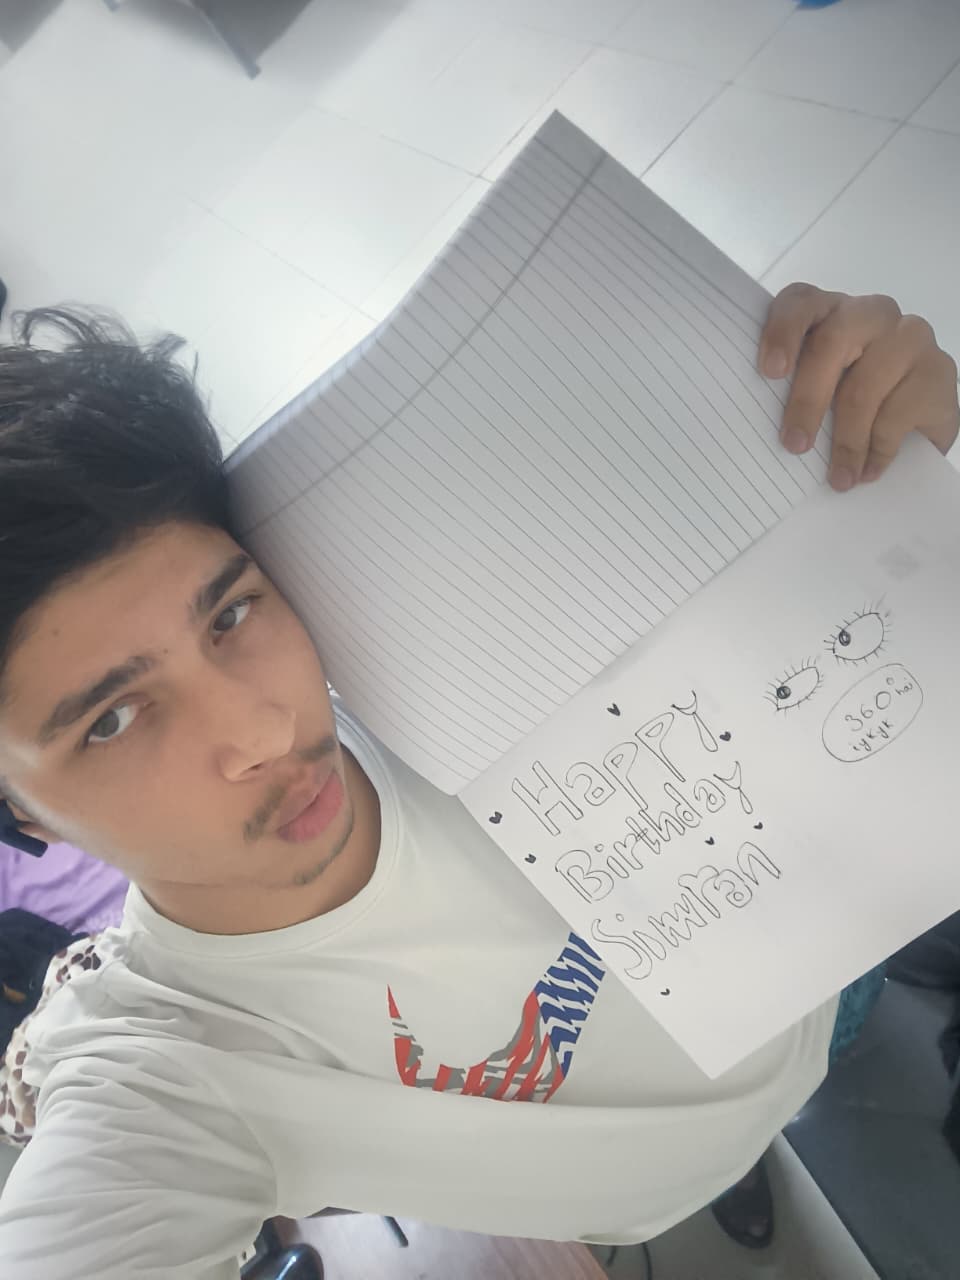 Happy
Birthday
Simran
360° hai
iykyk